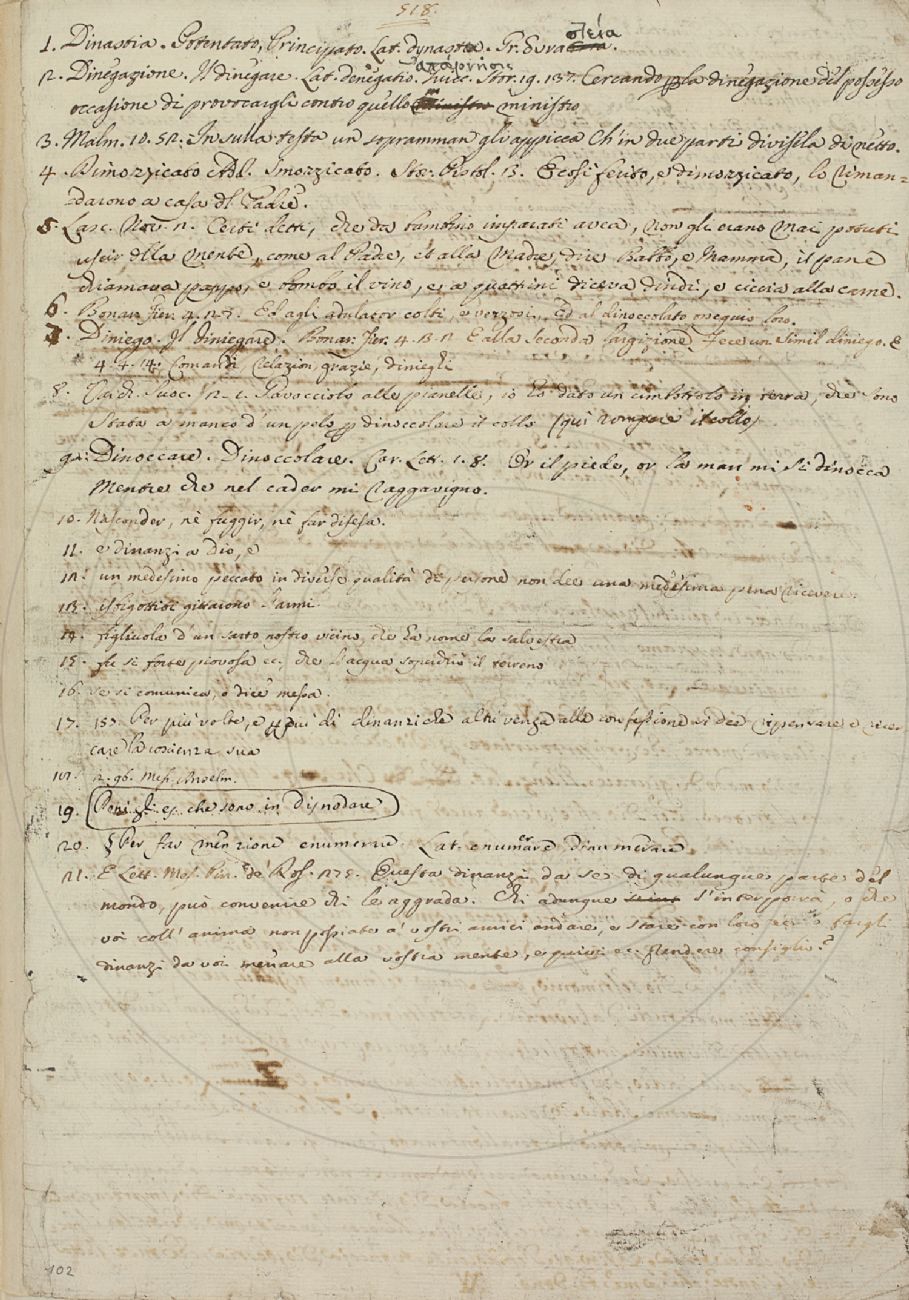 518.
1. Dinastia. Potentato, Principato. Lat. dynastia. Gr. δυναστεία.
2. Dinegazione. Il dinegare. Lat. denegatio. ἀπάρνησις. Guicc. Stor. 19. 137. Cercando la dinegazione del possesso
occasione di provocargli contro quello ministro
3. Malm. 10. 52. In sulla testa un sopramman gli appicca Ch'in due parti divisela di netto.
4. Dimozzicato add. Smozzicato. Stor. Pistol. 13. E così ferito, e dimozzicato, lo riman-
darono a casa del Padre.
5. Lasc. Nov. 2. Certi detti, che da bambino imparati avea, non gli erano mai potuti
uscir della mente, come al Padre, et alla Madre, dire Babbo, e Mamma, il pane
chiamava pappo, e bombo il vino, e a quattrini diceva dindi, e ciccia alla carne.
6. Bonar. Fier. 4. 2. 7. Ed agli adulator colti, e vezzosi, Ed al dinoccolato ossequio loro.
7. Diniego. Il diniegare. Bonar. Fier. 4. 3. 2 E alla seconda largizione Fece un simil diniego. E
4. 4. 14. Comandi, relazion, grazie, dinieghi
8. alle pianelle, io ho dato un cimbottolo in terra, che sono
stata a manco d'un pelo dinoccolare il collo (qui rompere il collo)
9. Dinoccare. Dinoccolare. Car. Lett. 1. 8. Or il piede, or la man mi si dinocca
Mentre che nel cader mi raggavigno.
10. Nasconder, nè fuggir, nè far difesa.
11. e dinanzi a Dio, e
12. un medesimo peccato in diverse qualità di persone non dee una medesima pena ricevere.
13. isbigottiti gittarono l'armi
14. figliuola d'un sarto nostro vicino, che ha nome la Salvestra
15. fu sì forte piovosa ec. che l'acqua soperchiò il terreno
16. se si comunica, o dice messa.
17. 137. Per più volte, e più dì dinanzi che altri venga alla confessione si dee ripensare e ricer-
care la coscienza sua
18. 2. 96. Mess. Anselm.
19. Poni gli es. che sono in Disnodare
20. § Per far menzione enumerare. Lat. enumerare dinumerare
21. E Lett. Mes. Pin. de' Ros. 275. Questa dinanzi da se di qualunque parte del
mondo, può convenire chi le aggrada. Chi adunque s'interporrà, o che
voi coll'anima non possiate a' vostri amici andare, e stare con loro ec. o fargli
dinanzi da voi menare alla vostra mente, e quivi ec. prendere consiglio?
102